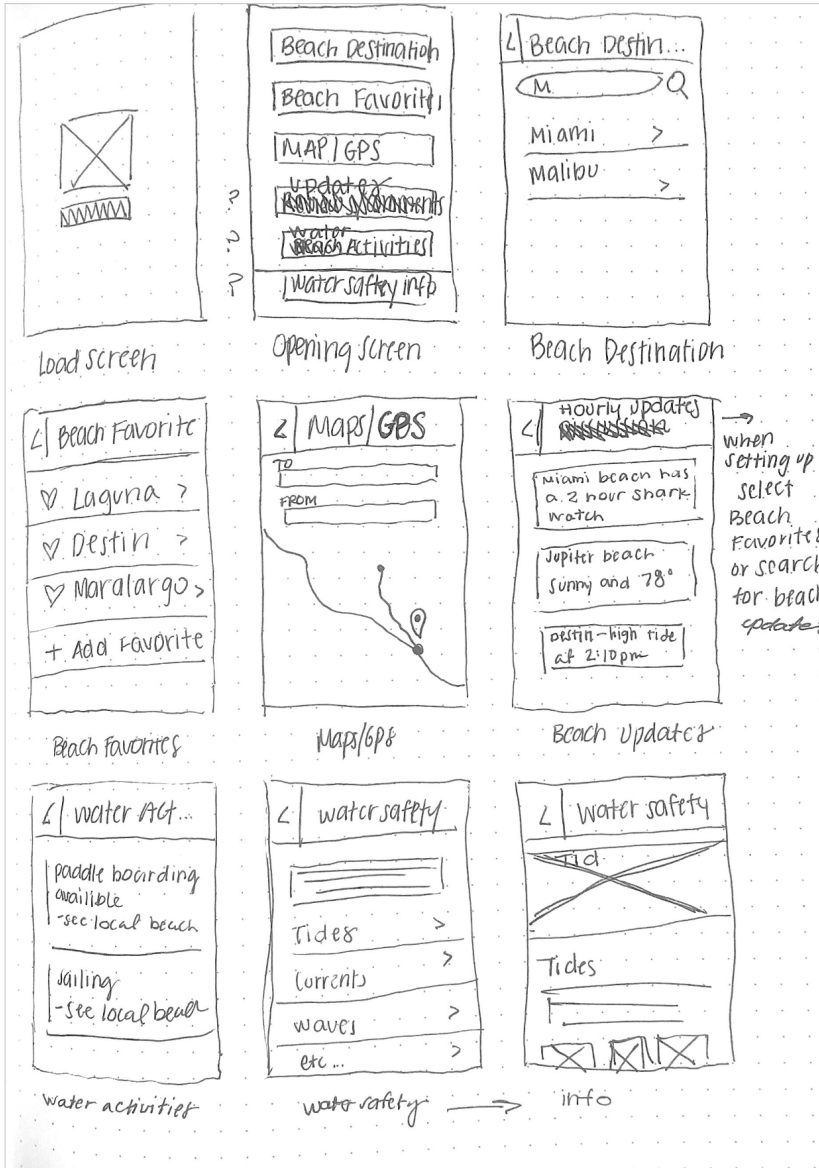 Beach Destination
Beach Favorite
MAP/GPS
updates
water
Beach Activities
water saftey info
?
?
?
< Beach Destin...
M
Miami >
Malibu >
Load screen
Opening screen
Beach Destination
< Beach Favorite
♡ Laguna >
♡ Destin >
♡ Maralargo >
+ Add Favorite
Beach Favorites
< Maps/GPS
TO
FROM
Maps/GPS
< Hourly updates
Miami beach has
a 2 hour shark
watch
Jupiter beach
sunny and 78°
Destin-high tide
at 2:10pm
Beach updates
→
when
setting up
select
Beach
Favorites
or search
for beach
updates
< water Act...
paddle boarding
availible
-see local beach
sailing
-see local beach
water activities
< water safety
Tides >
Currents >
waves >
etc... >
water safety →
< Water safety
Tid
Tides
info